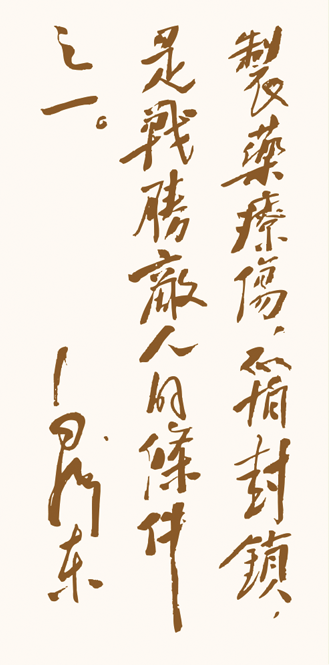 製藥療傷，不怕封鎖，
是戰勝敵人的條件
之一。
毛澤东